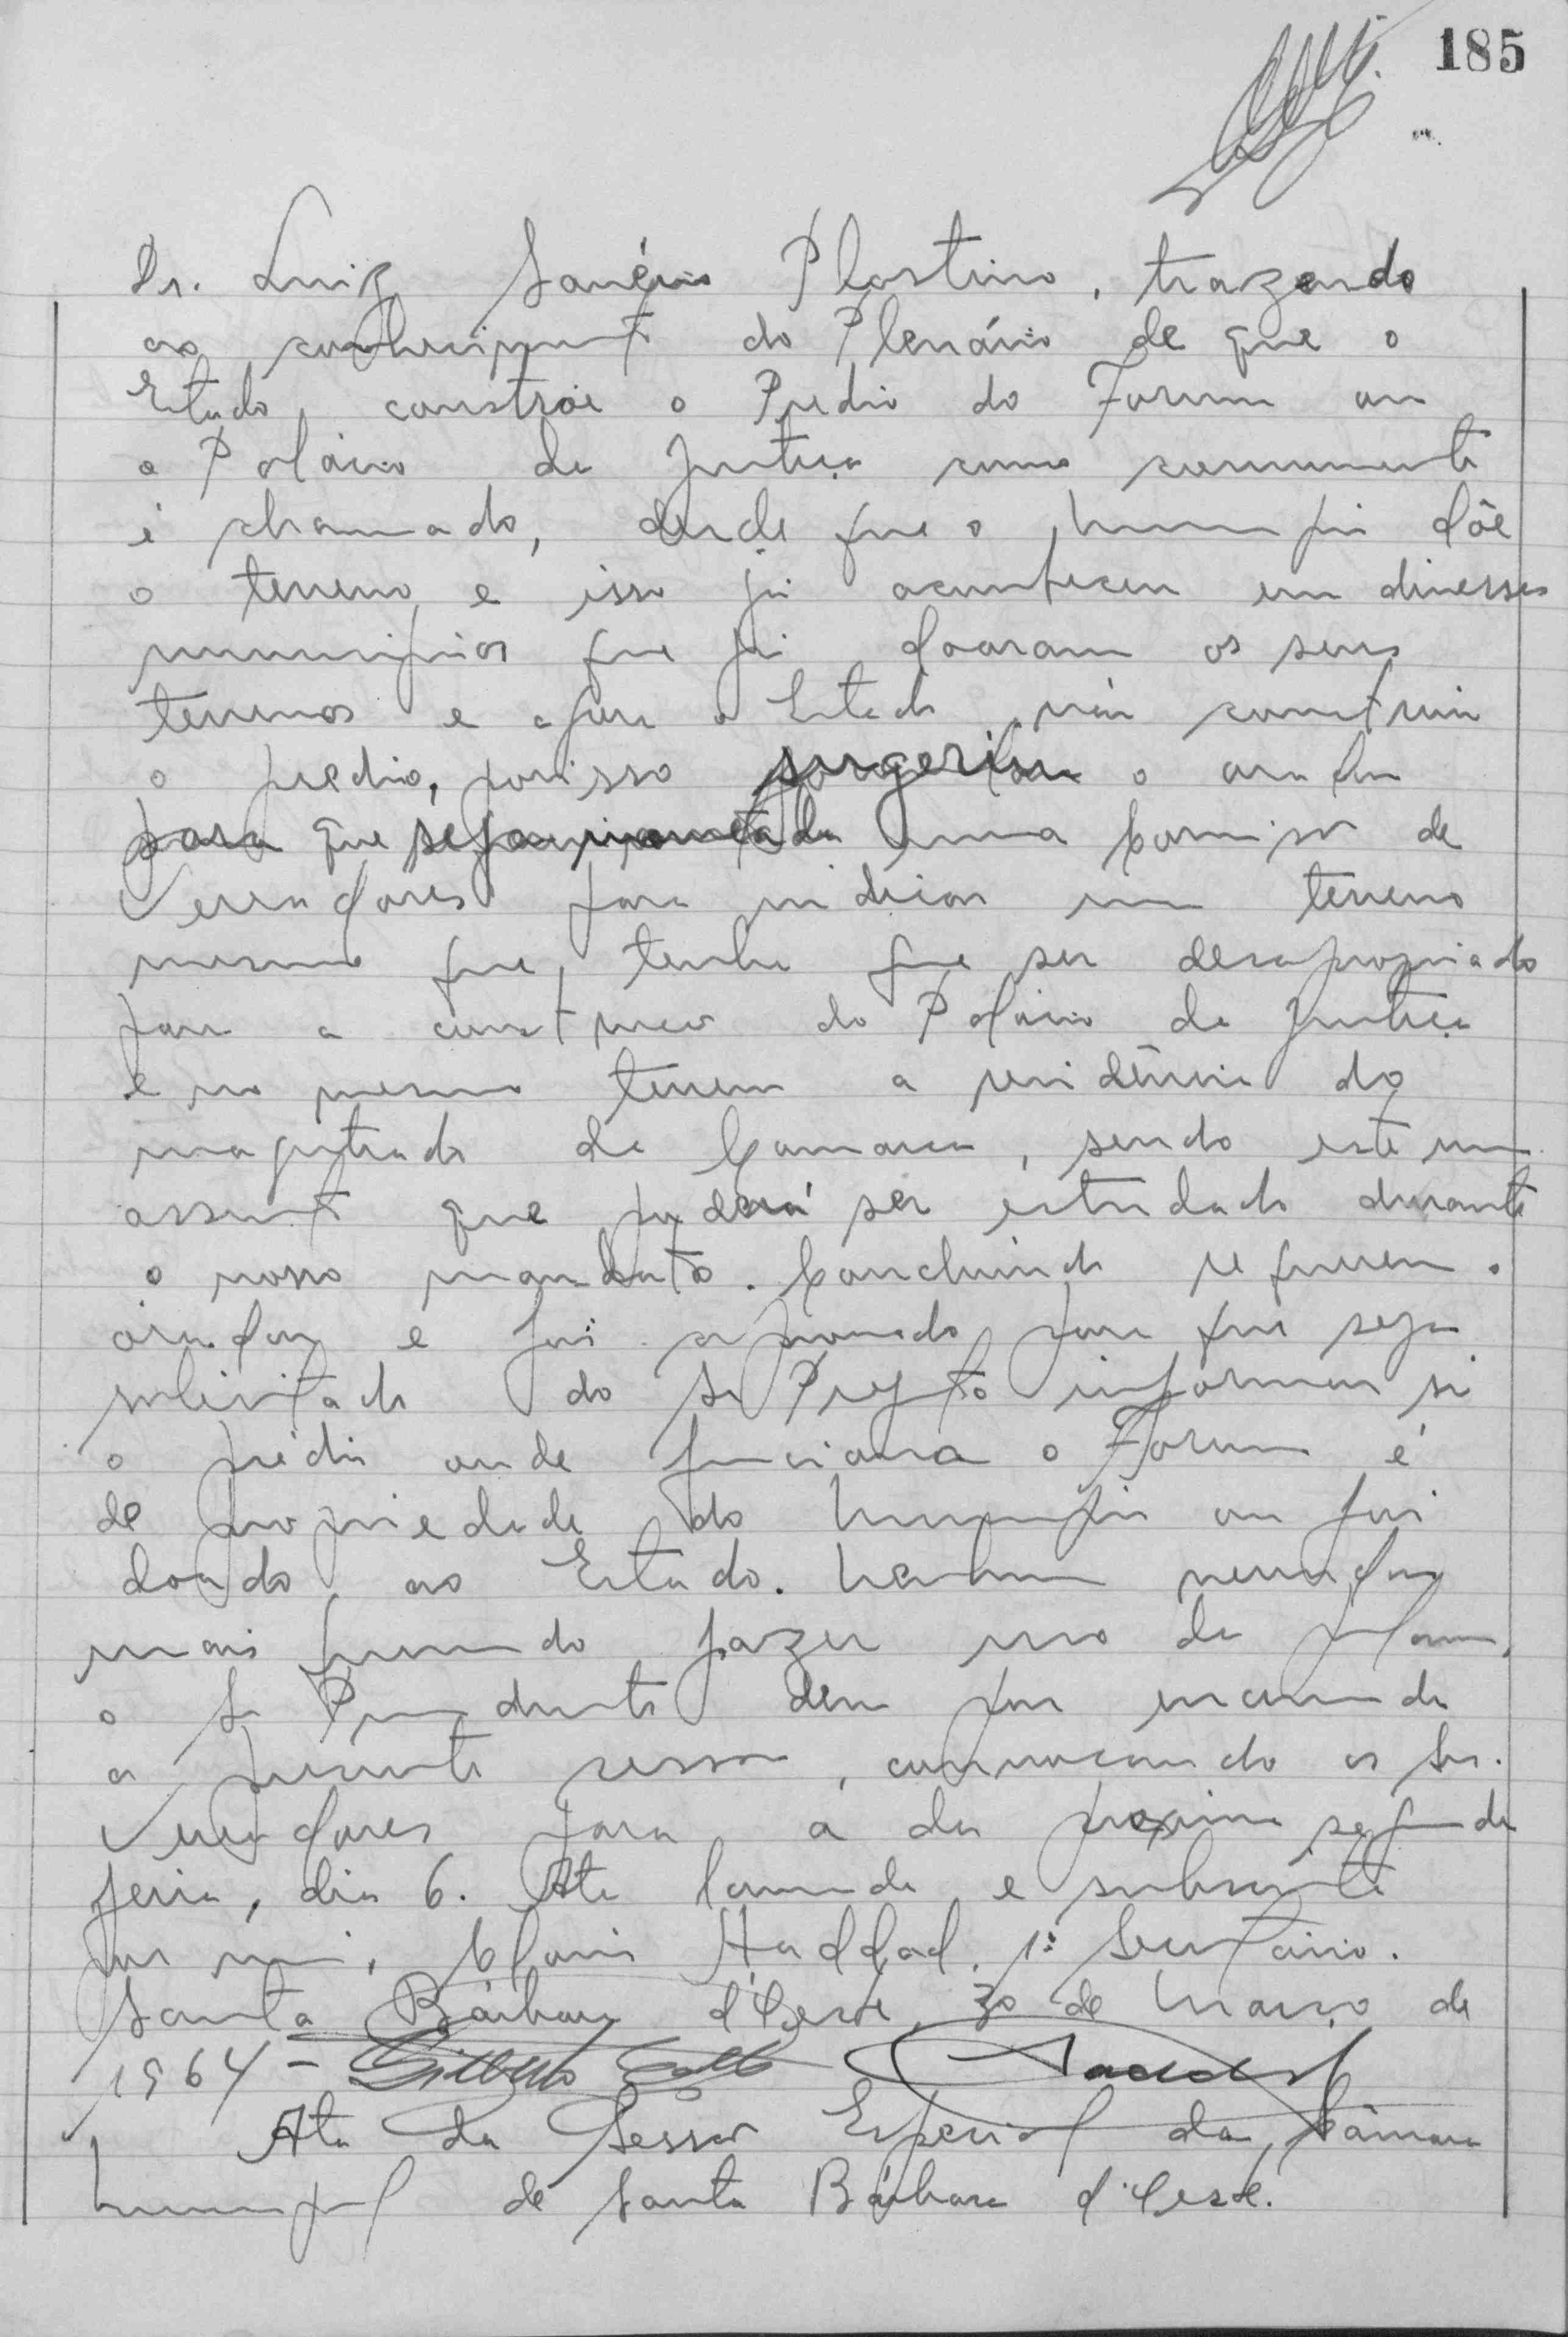 185
Dr. Luiz Plastino, trazendo
ao conhecimento do Plenário de que o
Estado, constroe o Predio do Forum ou
o Palácio da Justiça como comumente
é chamado, desde que o Municipio dôe
o terreno, e isso já aconteceu em diversos
municipios que já doaram os seus
terrenos e agora o Estado vái construir
o predio, porisso sugeriu o orador
para que seja uma Comissão de
Vereadores para indicar um terreno
mesmo que, tenha que ser desapropriado
para a construção do Palácio da Justiça
e no mesmo terreno a residência do
magistrado da Comarca, sendo este um
assunto que poderá ser estudado durante
o nosso mandato. Concluindo requereu o
orador e foi aprovado para que seja
solicitado do Sr Prefeito informar si
o prédio onde funciona o Forum é
de propriedade do Municipio ou foi
doado ao Estado. Nenhum vereador
mais querendo fazer uso da palavra,
o Sr Presidente deu por encerrada
a presente sessão, convocando os Srs.
Vereadores para a da proxima segunda
feira, dia 6. Ata lavrada e subscrita
por mim, Clovis Haddad, 1º Secretário.
Santa Bárbara d'Oeste, 30 de Março de
1964 - Haddad
Ata da Sessão Especial da Câmara
Municipal de Santa Bárbara d'Oeste.